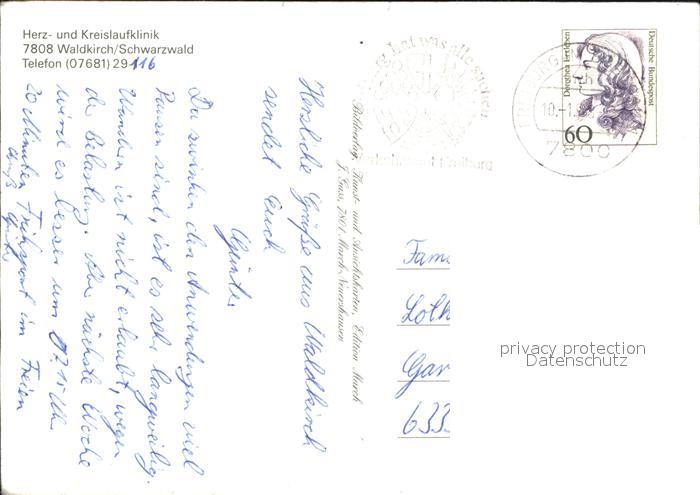 Herz- und Kreislaufklinik
7808 Waldkirch/Schwarzwald
Telefon (07681) 29-116
Herzliche Grüße aus Waldkirch
sendet Euch
Günter
Da zwischen den Anwendungen viel
Pausen sind, ist es sehr langweilig.
Wandern ist nicht erlaubt, wegen
der Belastung. Ab nächste Woche
wird es besser um 7.15 Uhr
20 Minuten Frühsport im Freien
Gruß Günter
Bildverlag, Kunst- und Ansichtskarten, Edition March
J. Guss, 7801 March-Neuershausen
hat was alle suchen
Freiburg
FREIBURG
10.-1.
7800
Deutsche Bundespost
Dorothea Erxleben
60
Fam
Loth
Gar
633
privacy protection
Datenschutz